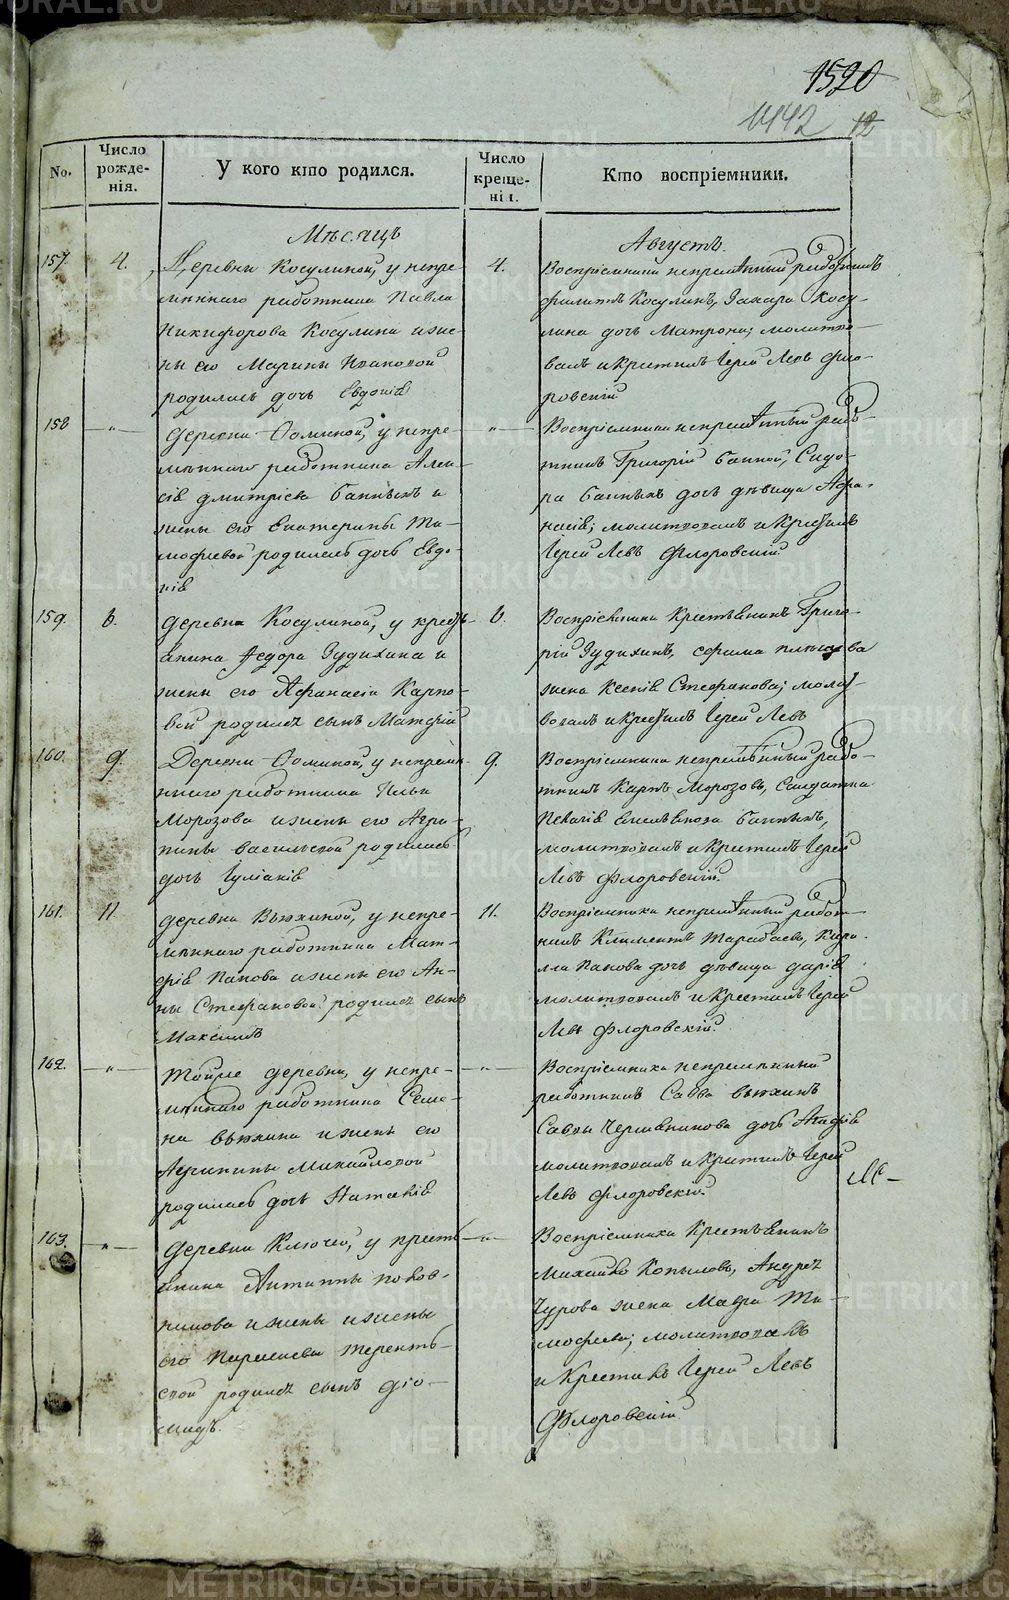 1520
1442 12
No.
Число рожде-нія.
У кого кто родился.
Число креще-нія.
Кто воспріемники.
Мѣсяцъ
Августъ.
157. 4.
Деревни Косулиной, у непре-
мѣннаго работника Павла
Никифорова Косулина и же-
ны его Марины Ивановой
родилась дочь Евдокія
4.
Воспріемники непремѣнный работникъ
Филиппъ Косулинъ, Захара Косу-
лина дочь Матрона; молитво-
валъ и крестилъ Іерей Левъ Фло-
ровскій
158 -"-
деревни Фоминой, у непре-
мѣннаго работника Алек-
сія Дмитріева Банныхъ и
жены его Екатерины Ти-
мофѣевой родилась дочь Евдо-
кія
-"-
Воспріемники непремѣнный рабо-
тникъ Григорій Банной, Сидо-
ра Банныхъ дочь дѣвица Афа-
насія; молитвовалъ и крестилъ
Іерей Левъ Флоровскій
159. 6.
деревни Косулиной, у кресть-
янина Федора Зудихина и
жены его Афанасіи Карпо-
вой родился сынъ Матфій
6.
Воспріемники крестьянинъ Григо-
рій Зудихинъ,
жена Ксенія Стефанова; молит-
вовалъ и крестилъ Іерей Левъ
160. 9.
Деревни Фоминой, у непремѣ-
ннаго работника Ильи
Морозова и жены его Агри-
пины Васильевой родилась
дочь Іуліанія
9.
Воспріемники непремѣнный рабо-
тникъ Карпъ Морозовъ, Солдатка
Пелагія Емельянова Банныхъ,
молитвовалъ и крестилъ Іерей
Левъ Флоровскій.
161. 11
деревни Вьюхиной, у непре-
мѣннаго работника Мат-
фія Панова и жены его Ан-
ны Стефановой родился сынъ
Максимъ
11.
Воспріемника непремѣнный работ-
никъ Климентъ Тарабаевъ, Кири-
лла Панова дочь дѣвица Дарія
молитвовалъ и крестилъ Іерей
Левъ Флоровскій.
162. -"-
Тойже деревни, у непре-
мѣннаго работника Семе-
на Вьюхина и жены его
Агрипины Михайловой
родилась дочь Наталія
-"-
Воспріемника непремѣнный
работникъ Савва Вьюхинъ
Саввы дочь Агафія
молитвовалъ и крестилъ Іерей
Левъ Флоровскій.
163. -"-
Деревни Ключей, у кресть-
янина Антипы
и жены и жены
его Терентье-
вой родился сынъ Діо-
мидъ.
-"-
Воспріемника крестьянинъ
Михайло Копыловъ, Андрея
Чурова жена Мавра Ти-
мофеева; молитвовалъ
и крестилъ Іерей Левъ
Флоровскій.
METRIKI.GASO-URAL.RU